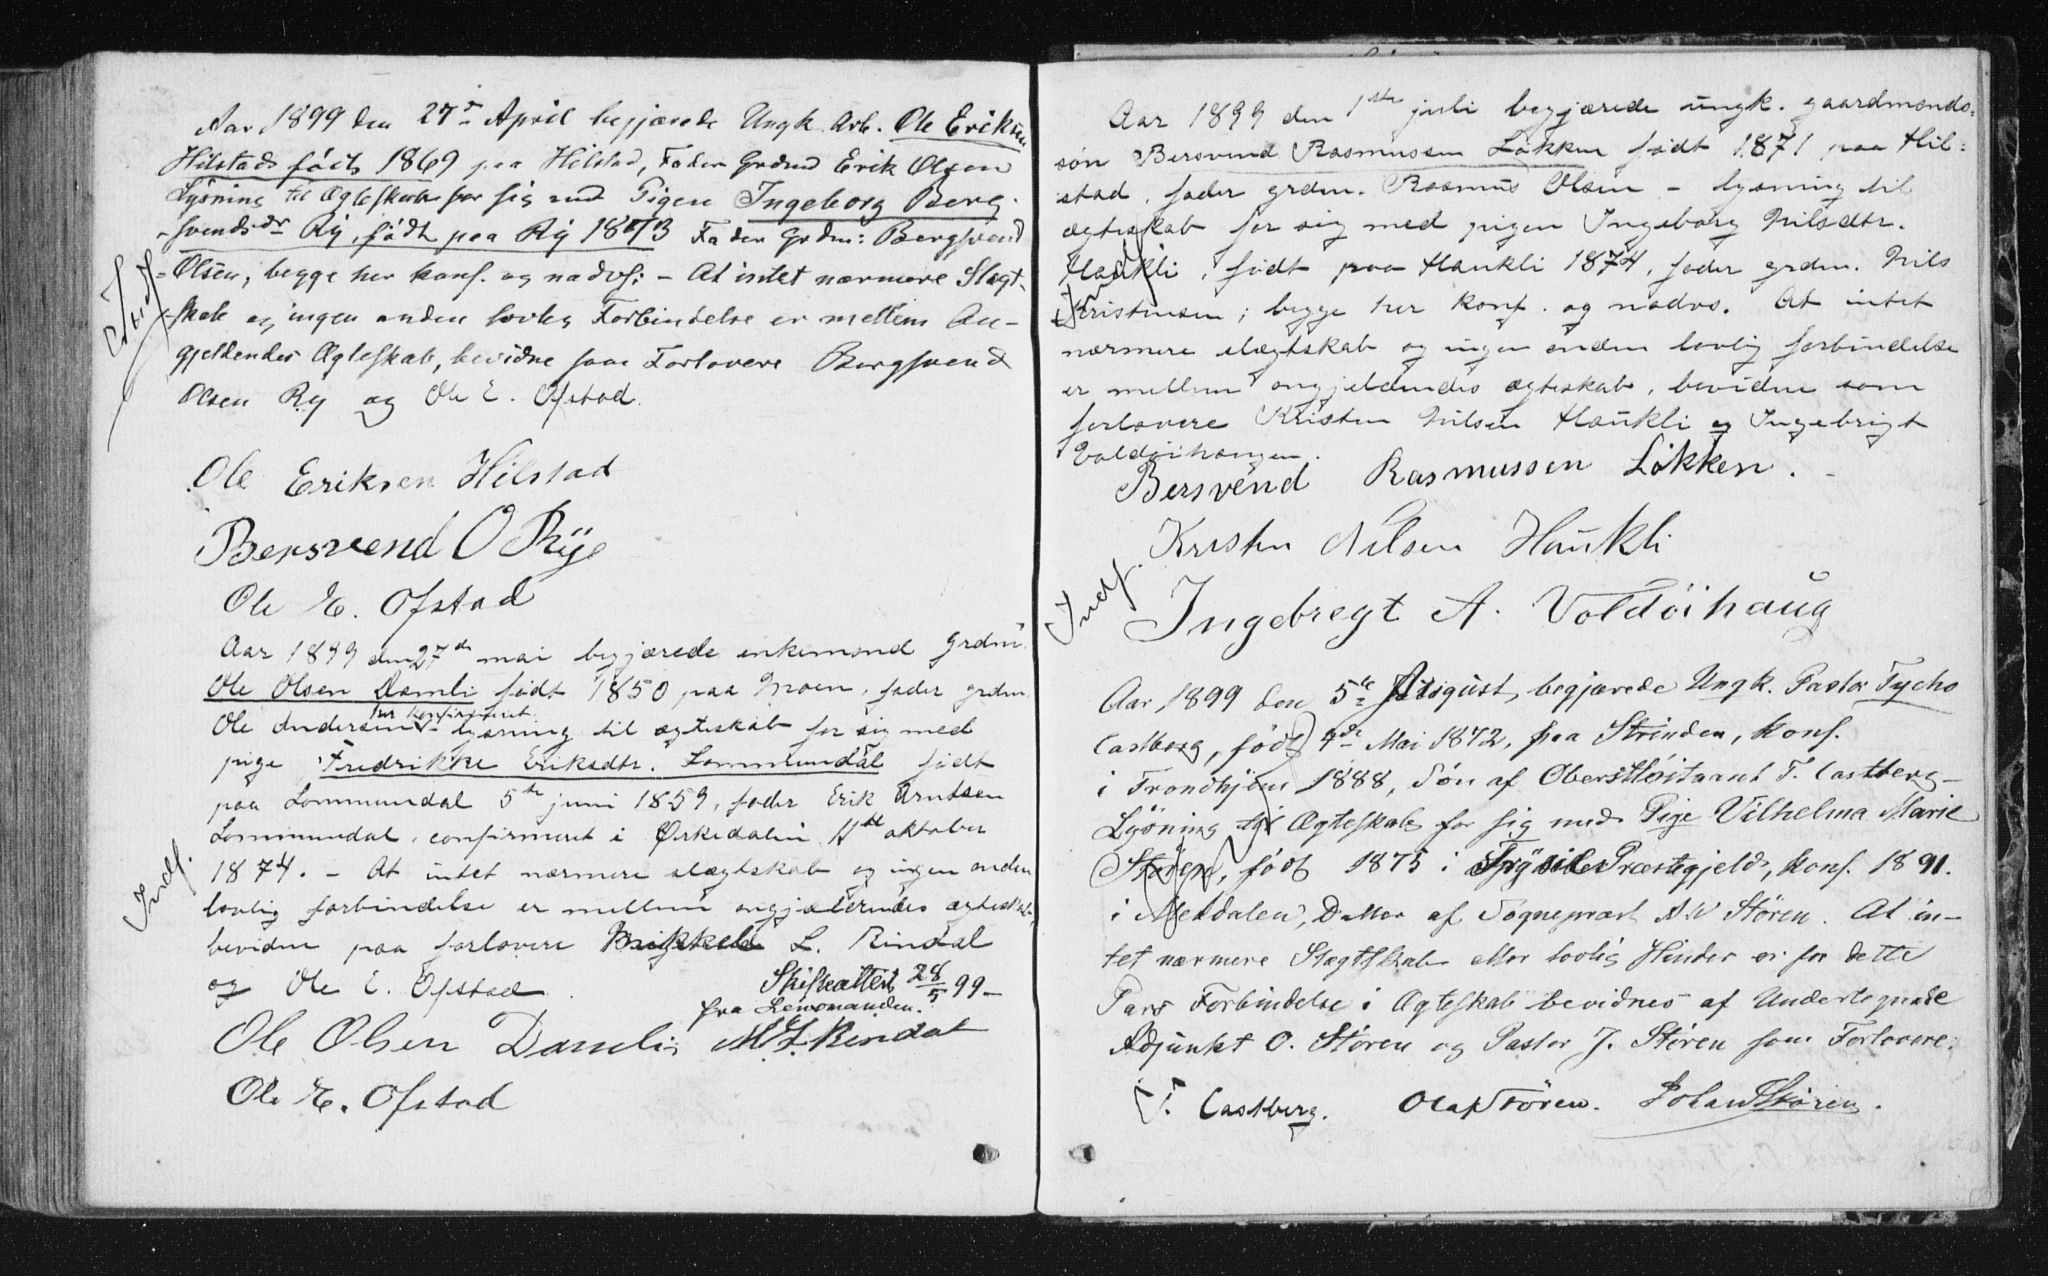 Aar 1899 den 27de April begjærede Ungk. Arb. Ole Eriksen
Hilstad født 1869 paa Hilstad, Fader Grdmd Erik Olsen
Lysning til Ægteskab for sig med Pigen Ingeborg Berg-
svendsdr Ry, født paa Ry 1873 Fader Grdm: Bergsvend
Olsen, begge her konf. og nadvf: - At intet nærmere Slægt-
skab og ingen anden lovlig Forbindelse er mellem An-
gjeldendes Ægteskab, bevidne som Forlovere Bergsvend
Olsen Ry og Ole E. Ofstad.
Indf.
Ole Eriksen Hilstad
Bersvend O Rye
Ole E. Ofstad
Aar 1899 den 27de mai begjærede enkemand Grdm.
Ole Olsen Damli født 1850 paa Moen, fader grdm.
her konfirmeret
Ole Andersen - lysning til ægteskab for sig med
pige Fredrikke Eriksdtr. Lommundal født
paa Lommundal 5te juni 1859, fader Erik Arntsen
Lommundal, confirmeret i Ørkedalen 11te oktober
1874. - At intet nærmere slægtskab og ingen anden
lovlig forbindelse er mellem angjældendes ægteskab,
bevidne paa forlovere L. Rindal
og Ole E. Ofstad
Indf.
Skifteattest 28/5 99 -
fra Lensmanden.
Ole Olsen Damli M. L. Rindal
Ole E. Ofstad
Aar 1899 den 1ste juli begjærede ungk. gaardmands-
søn Bersvend Rasmussen Løkken født 1871 paa Hil-
stad, fader grdm. Rasmus Olsen - lysning til
ægteskab for sig med pigen Ingeborg Nilsdtr.
Haukli, født paa Haukli 1874, fader grdm. Nils
Kristensen; begge her konf. og nadvs. At intet
nærmere slægtskab og ingen anden lovlig forbindelse
er mellem angjeldendes ægteskab, bevidne som
forlovere Kristen Nilsen Haukli og Ingebrigt
Voldøihaugen.
Indf.
Bersvend Rasmussen Løkken.
Kristen Nilsen Haukli
Ingebregt A. Voldöihaug
Indf.
Aar 1899 den 5te August, begjærede Ungk. Pastor Tycho
Castberg, født 4de Mai 1872, paa Strinden, konf.
i Trondhjem 1888, Søn af Oberstløitnant T. Castberg -
Lysning til Ægteskab for sig med Pige Vilhelma Marie
Støren, født 1875 i Trysil Præstegjeld, konf. 1891.
i Meldalen, Datter af Sogneprest A W Støren. At in-
tet nærmere Slægtskab eller lovlig Hinder er for dette
Pars Forbindelse i Ægteskab bevidnes af Undertegnede
Adjunkt O. Støren og Pastor J. Støren som Forlovere:
T. Castberg. Olaf Støren. Johan Støren.